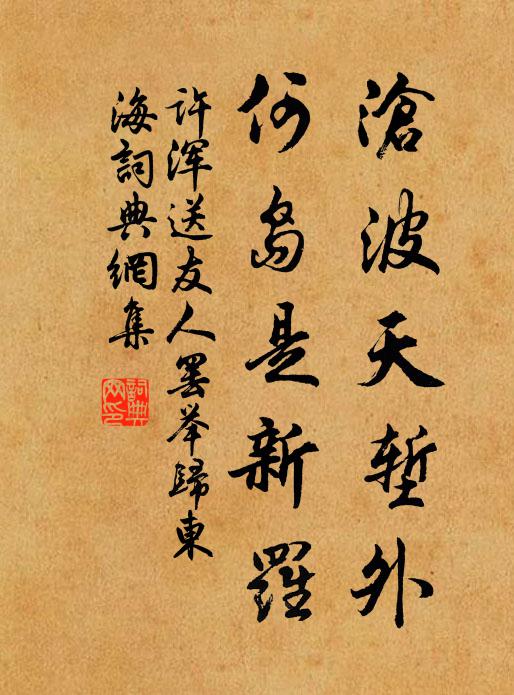 滄波天塹外
何島是新羅
许渾送友人罢举歸東
海詞典網集
詞典网印